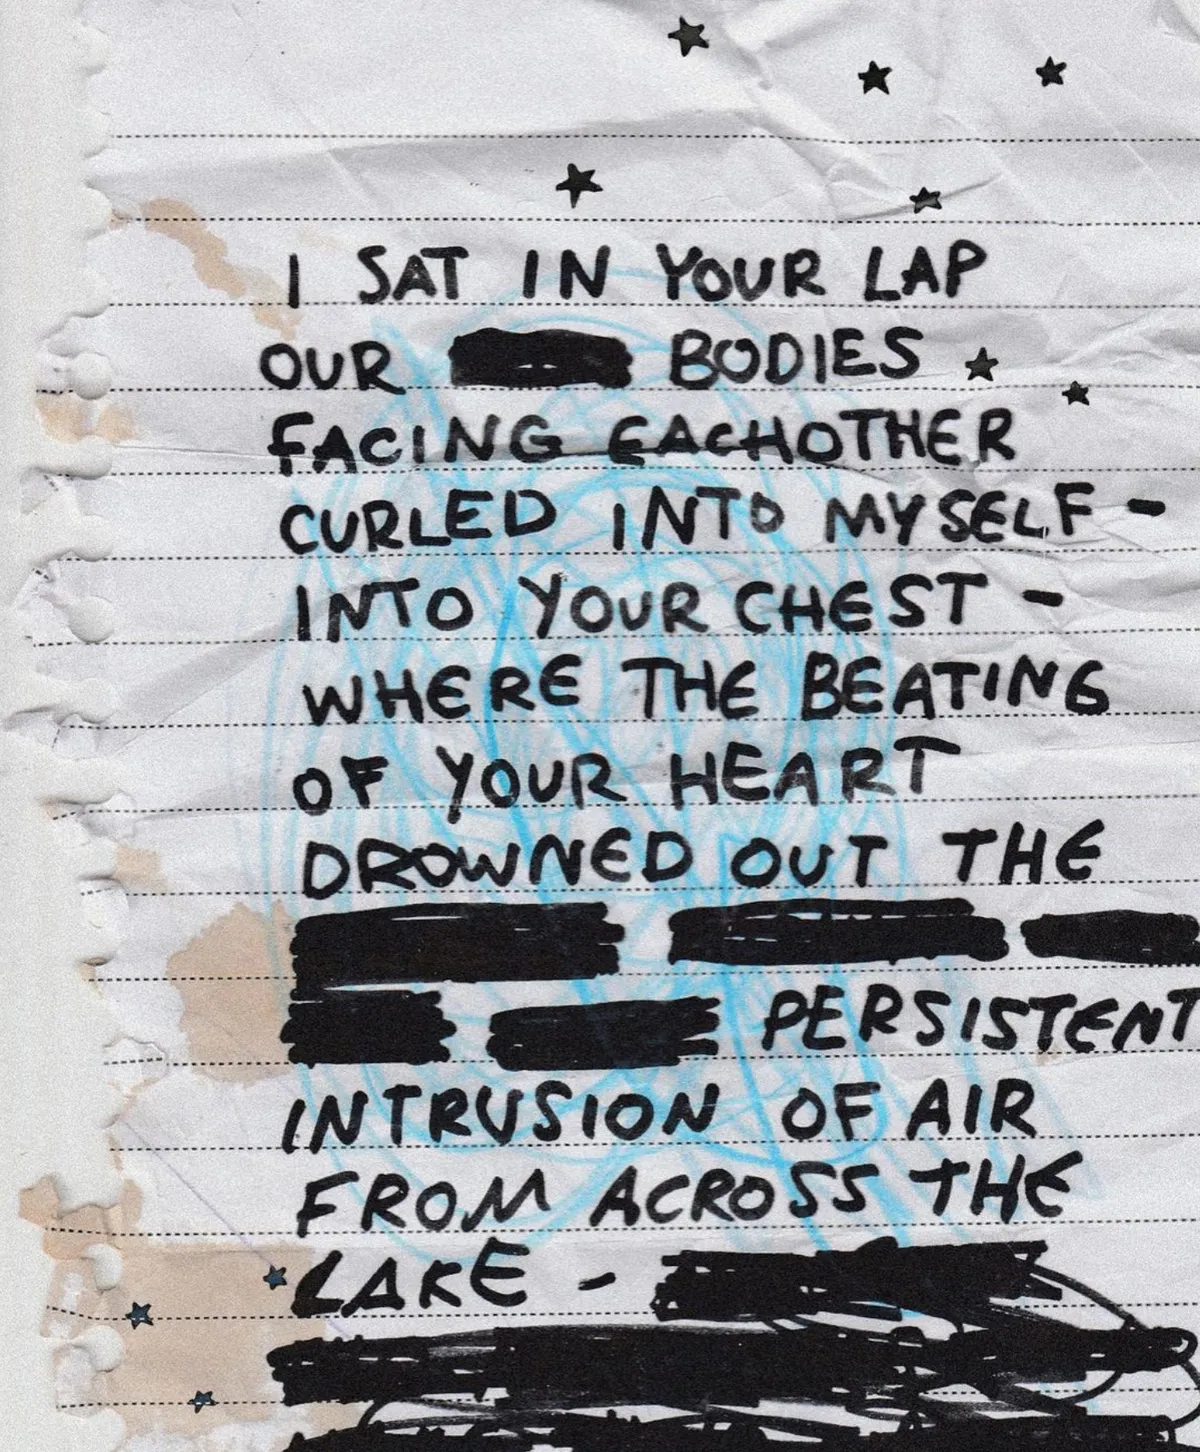 I SAT IN YOUR LAP
OUR BODIES
FACING EACHOTHER
CURLED INTO MYSELF -
INTO YOUR CHEST -
WHERE THE BEATING
OF YOUR HEART
DROWNED OUT THE
PERSISTENT
INTRUSION OF AIR
FROM ACROSS THE
LAKE -